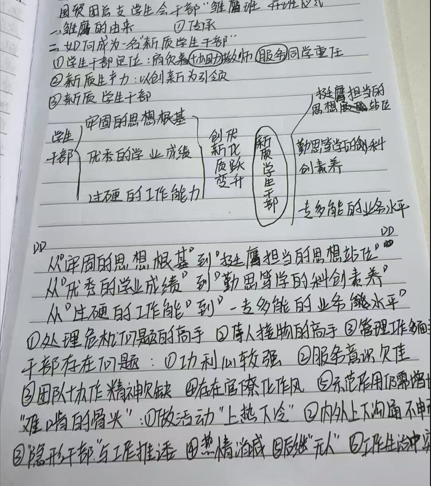 团学生会干部"雏鹰班"开班仪式
一、雏鹰的由来 ①传承
二、如何成为一名"新质学生干部"
①学生干部定位：协助教师 服务同学重任
②新质生产力：以创新为引领
③新质学生干部
挺膺担当的思想站位
牢固的思想根基
学生干部 优秀的学业成绩 创优 新化 质跃 变升 新质学生干部 勤思笃学的科创素养
过硬的工作能力
一专多能的业务水平
从"牢固的思想根基"到"挺膺担当的思想站位"
从"优秀的学业成绩"到"勤思笃学的科创素养"
从"过硬的工作能"到"一专多能的业务水平"
①处理危机问题的高手 ②待人接物的高手 ③管理工作
干部存在问题：①功利心较强 ②服务意识欠佳
③团队协作精神欠缺 ④存在官僚化作风 ⑤示范作用仍需增
"难啃的骨头"：①做活动"上热下冷" ②内外上下沟通不
③"隐形干部"与工作推诿 ④热情消减 ⑤后继"无人" ⑥工作生活中